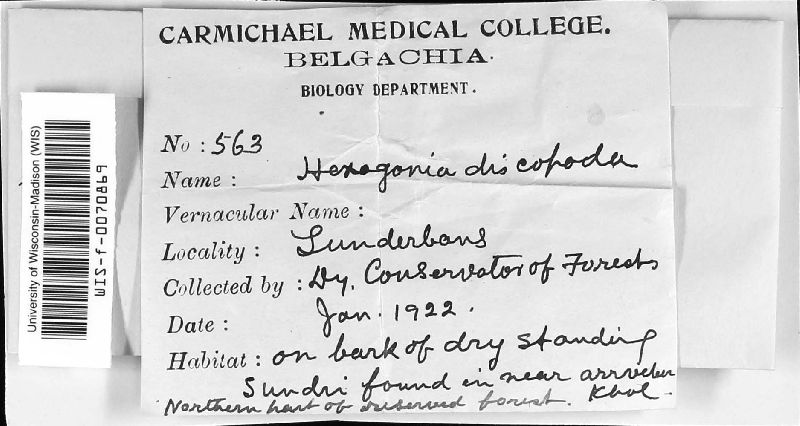 CARMICHAEL MEDICAL COLLEGE.
BELGACHIA.
BIOLOGY DEPARTMENT.
No : 563
Name : Hexagonia discopoda
Vernacular Name :
Locality : Sunderbans
Collected by : Dy. Conservator of Forests
Date : Jan. 1922.
Habitat : on bark of dry standing
Sundri found in near Khal.
Northern part of reserved forest.
University of Wisconsin-Madison (WIS)
WIS-f-0070869